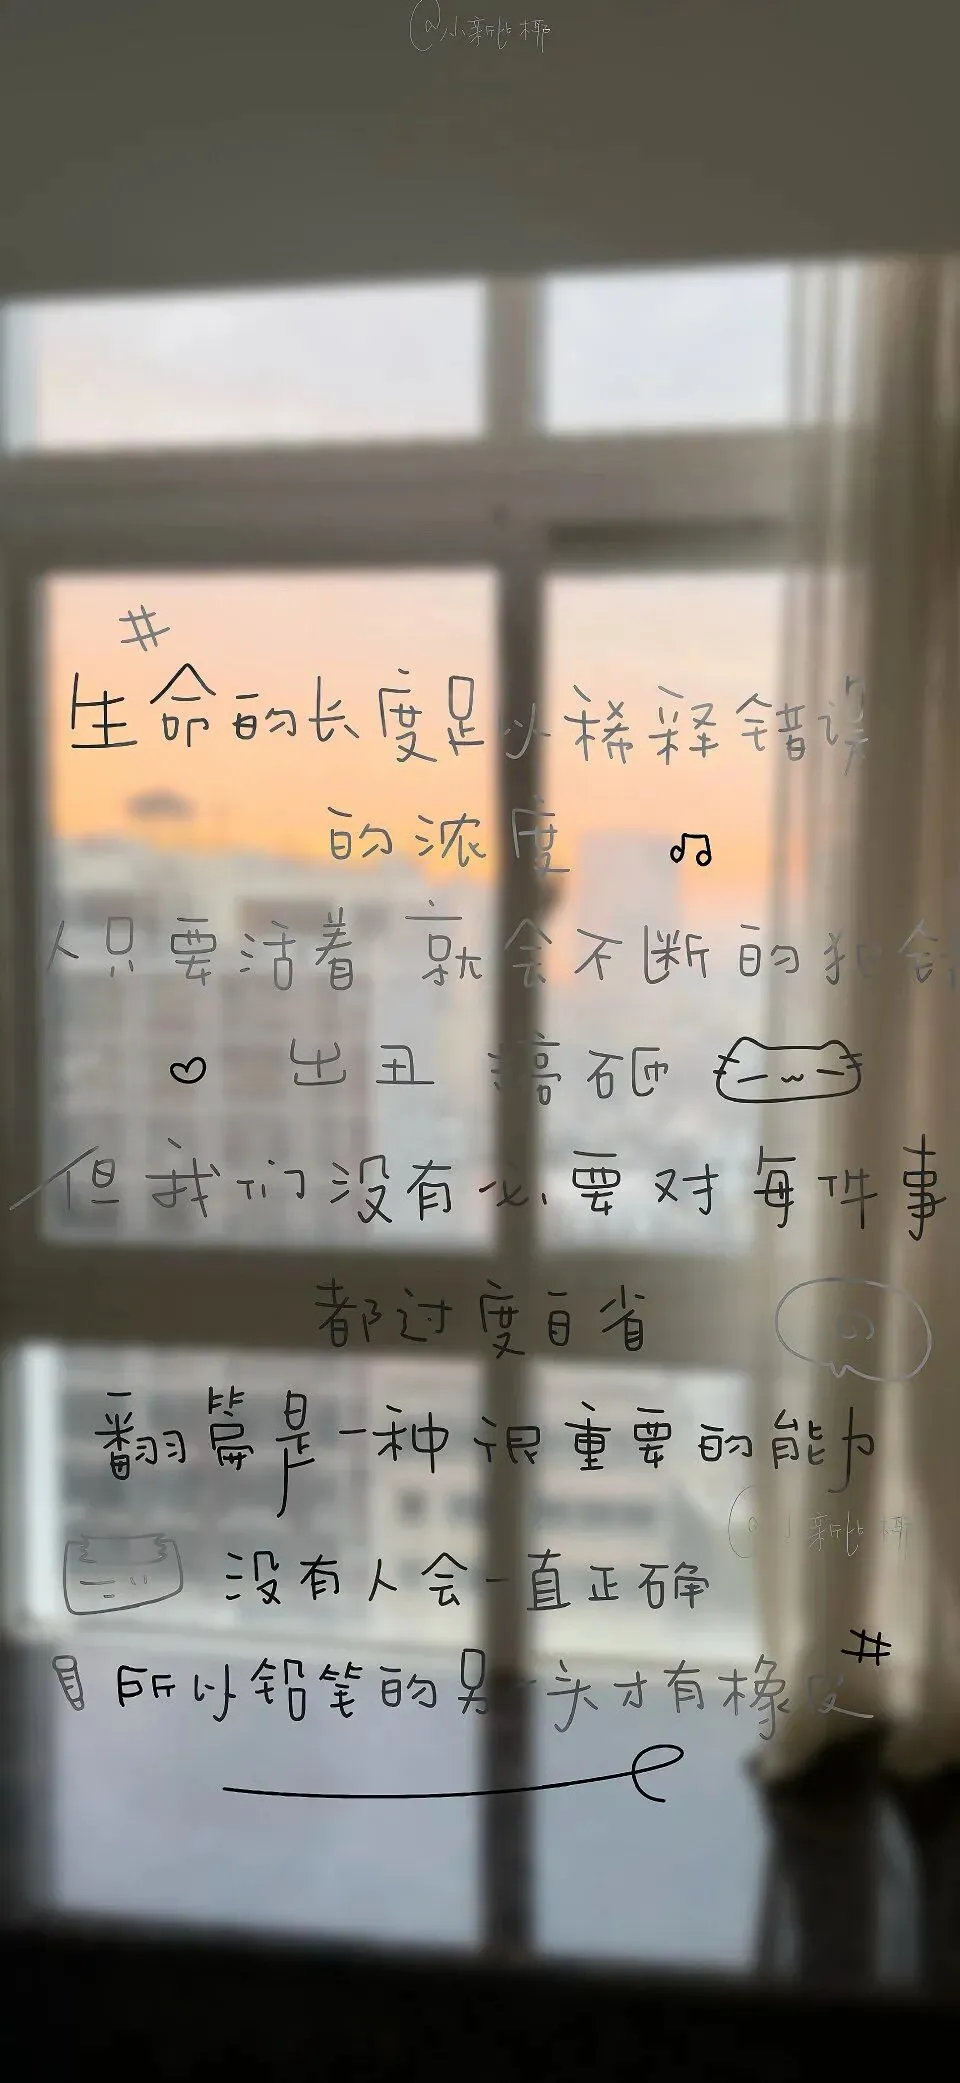 @小新批椰
#
生命的长度足以稀释错误
的浓度
人只要活着 就会不断的犯错
出丑 搞砸
但我们没有必要对每件事
都过度自省
翻篇是一种很重要的能力
没有人会一直正确
#
所以铅笔的另一头才有橡皮